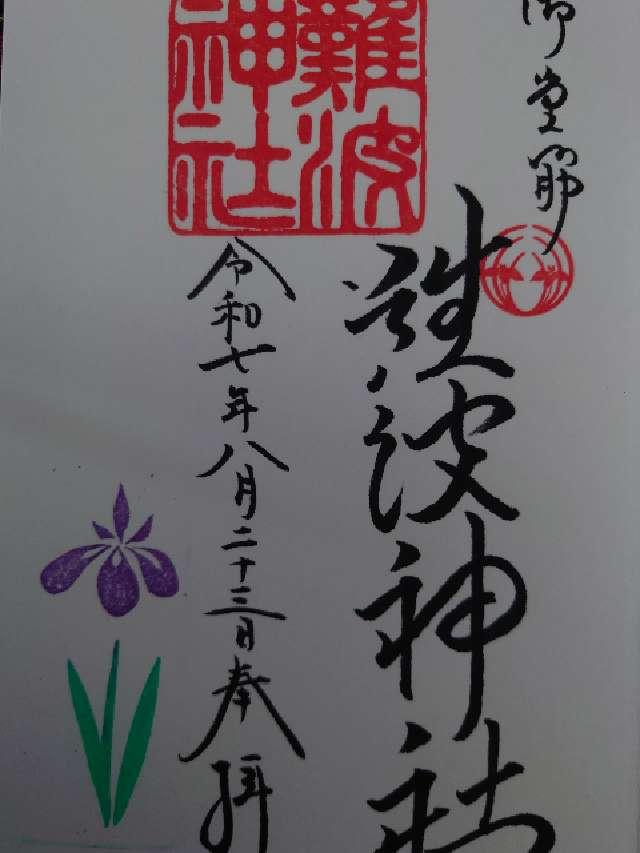 御堂筋
難波神社
難波
神社
令和七年八月二十三日奉拝